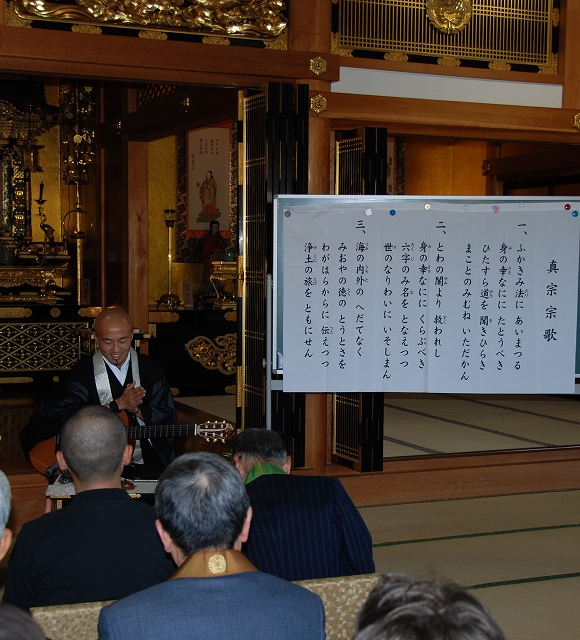 真宗宗歌
一、ふかきみ法に あいまつる
身の幸なにに たとうべき
ひたすら道を 聞きひらき
まことのみむね いただかん
二、とわの闇より 救われし
身の幸なにに くらぶべき
六字のみ名を となえつつ
世のなりわいに いそしまん
三、海の内外の へだてなく
みおやの徳の とうとさを
わがはらからに 伝えつつ
浄土の旅を ともにせん